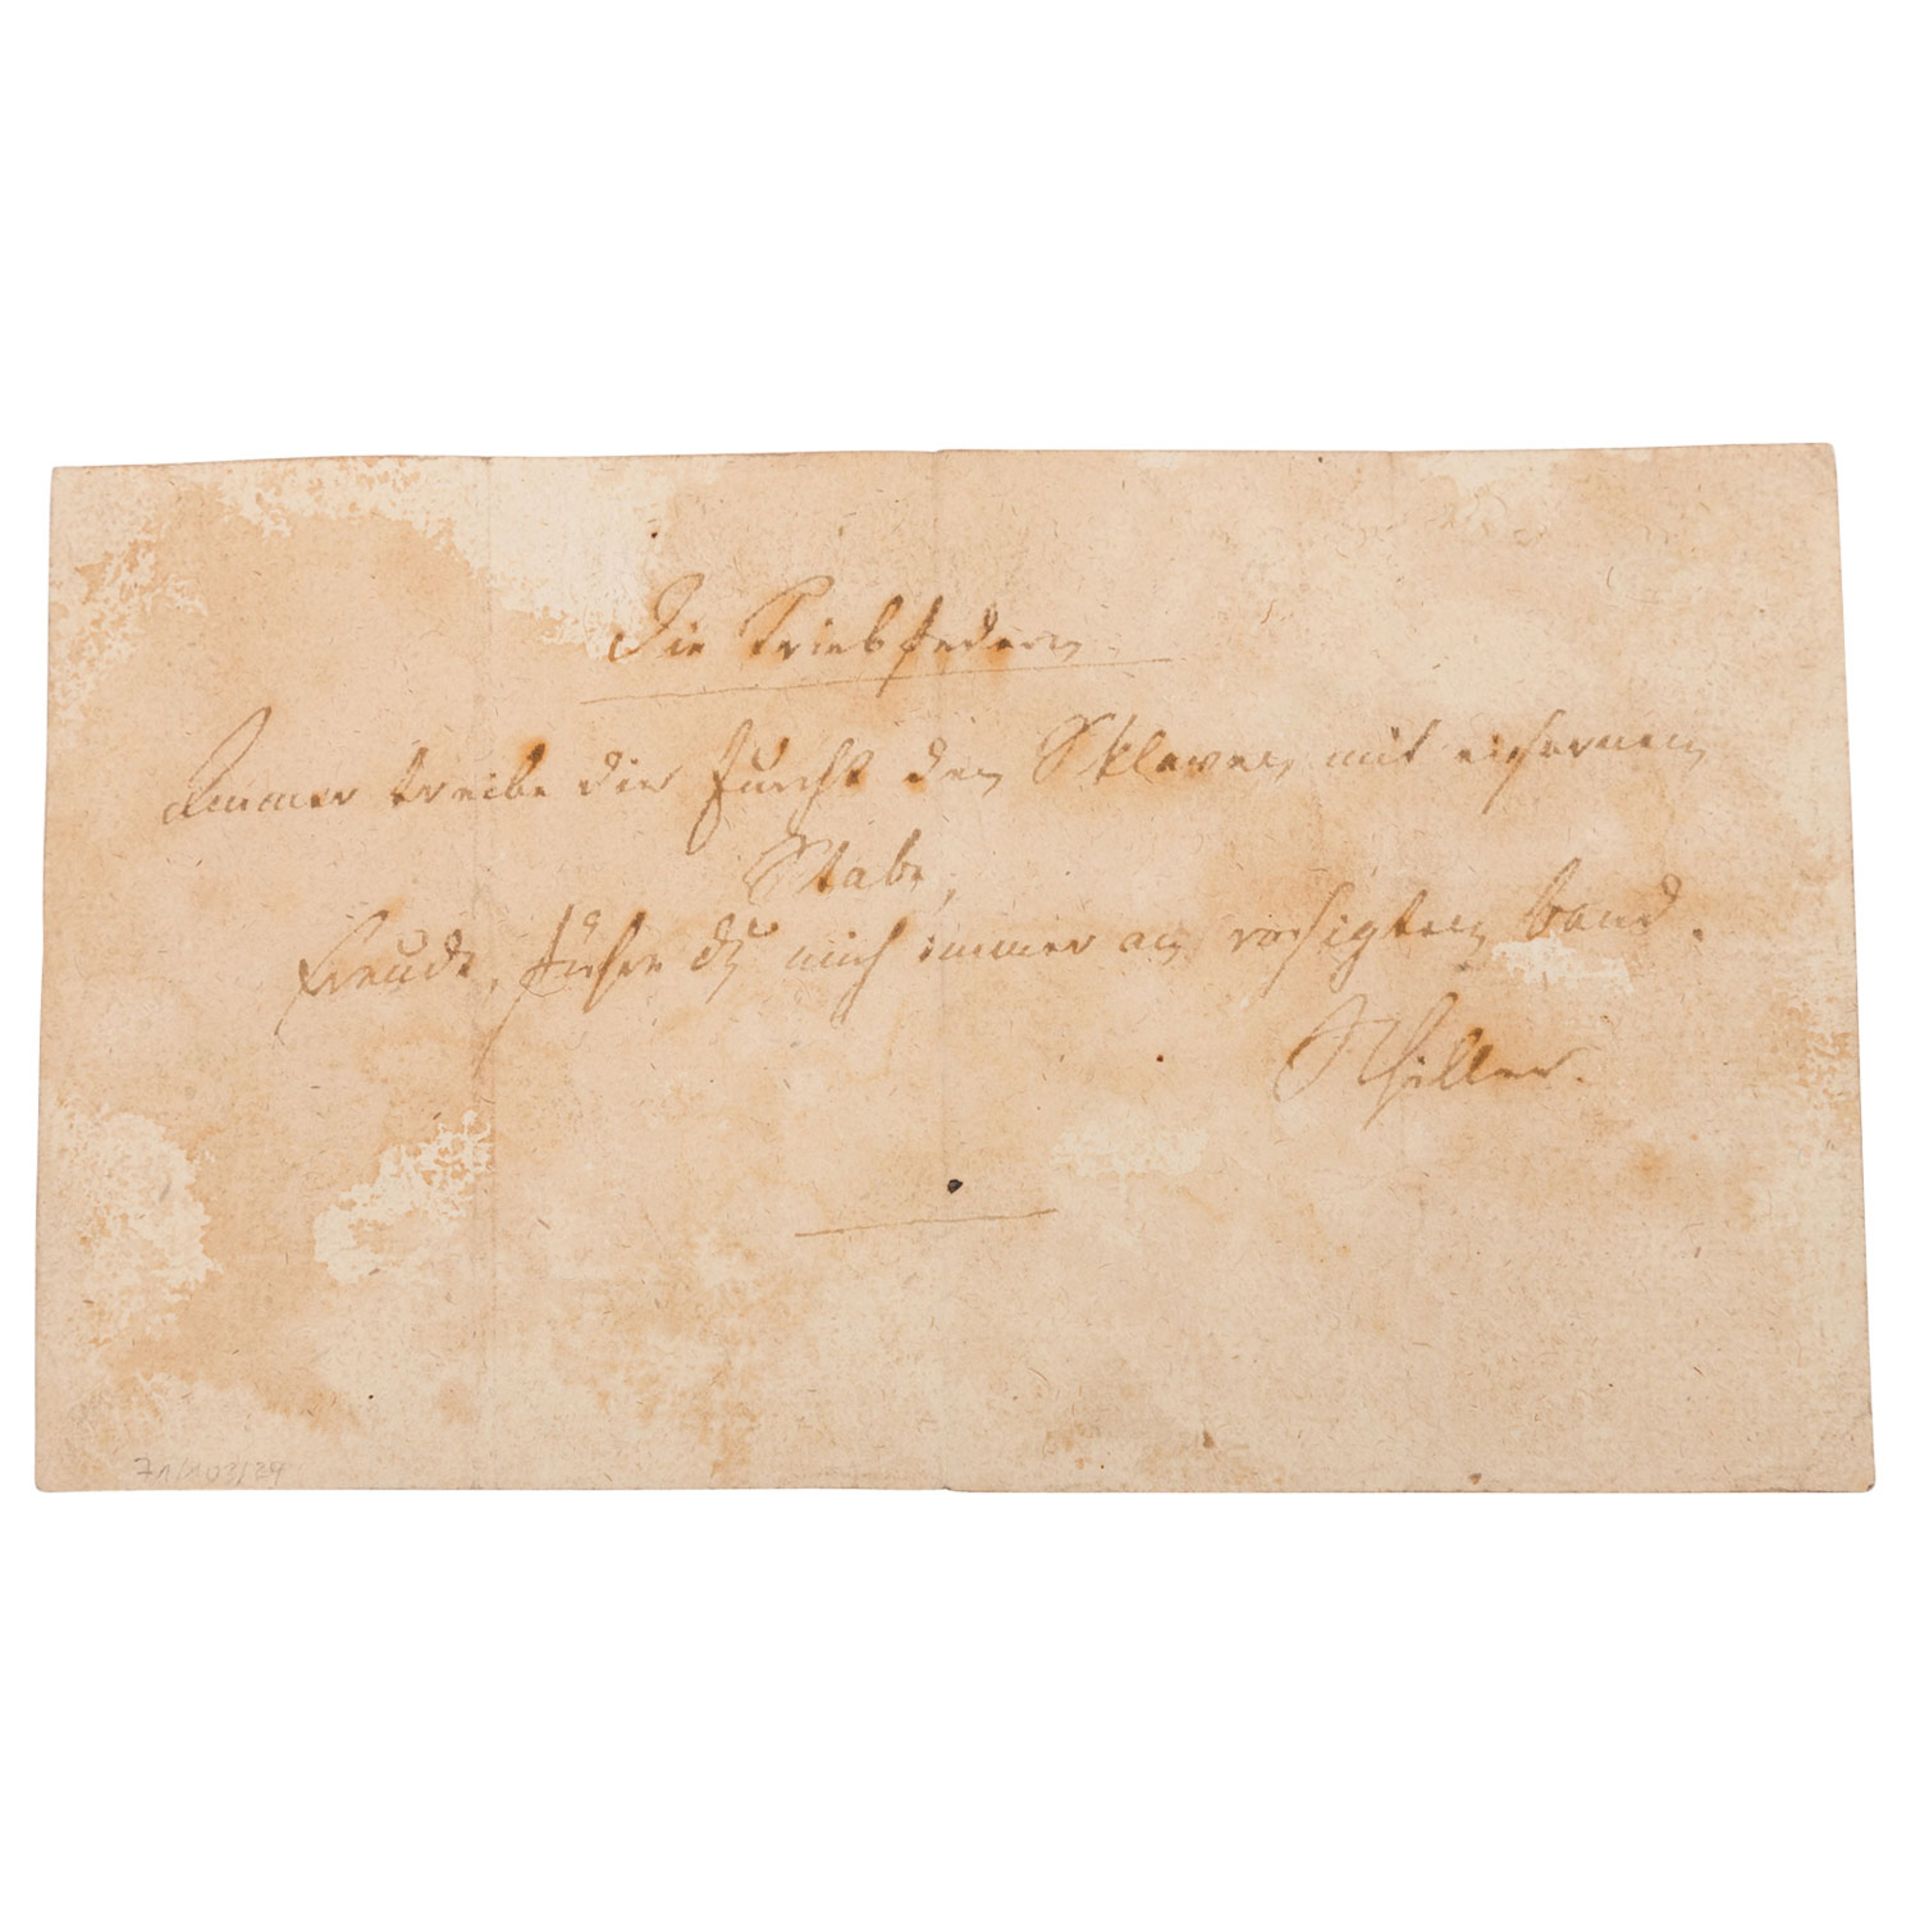 Die Triebfedern
Immer treibe die Furcht den Sklaven mit eisernem
Stabe,
Freude, führe du mich immer an rosigten Band.
Schiller.
71/103/29